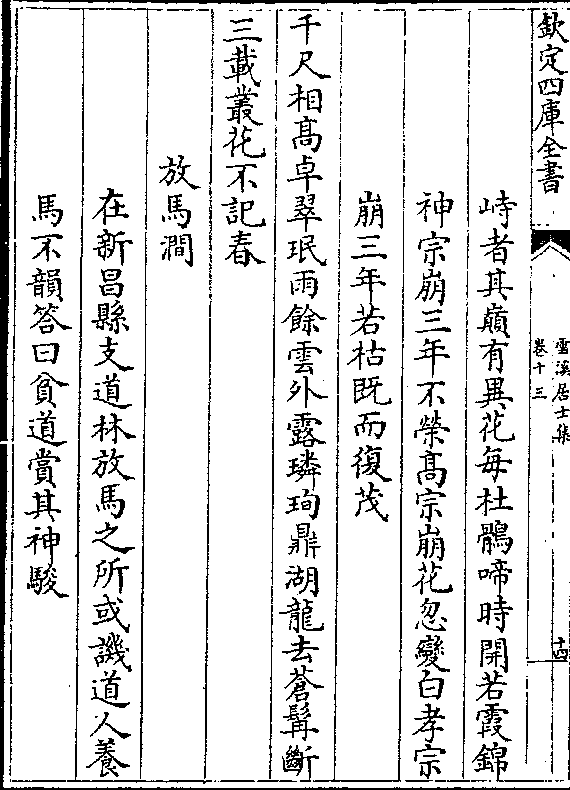 欽定四庫全書
雪溪居士集
卷十三
十四
峙者其巔有異花每杜鵑啼時開若霞錦
神宗崩三年不榮髙宗崩花忽變白孝宗
崩三年若枯既而復茂
千尺相髙卓翠珉雨餘雲外露璘珣鼎湖龍去蒼髯斷
三載叢花不記春
放馬澗
在新昌縣支道林放馬之所或譏道人養
馬不韻答曰貧道賞其神駿